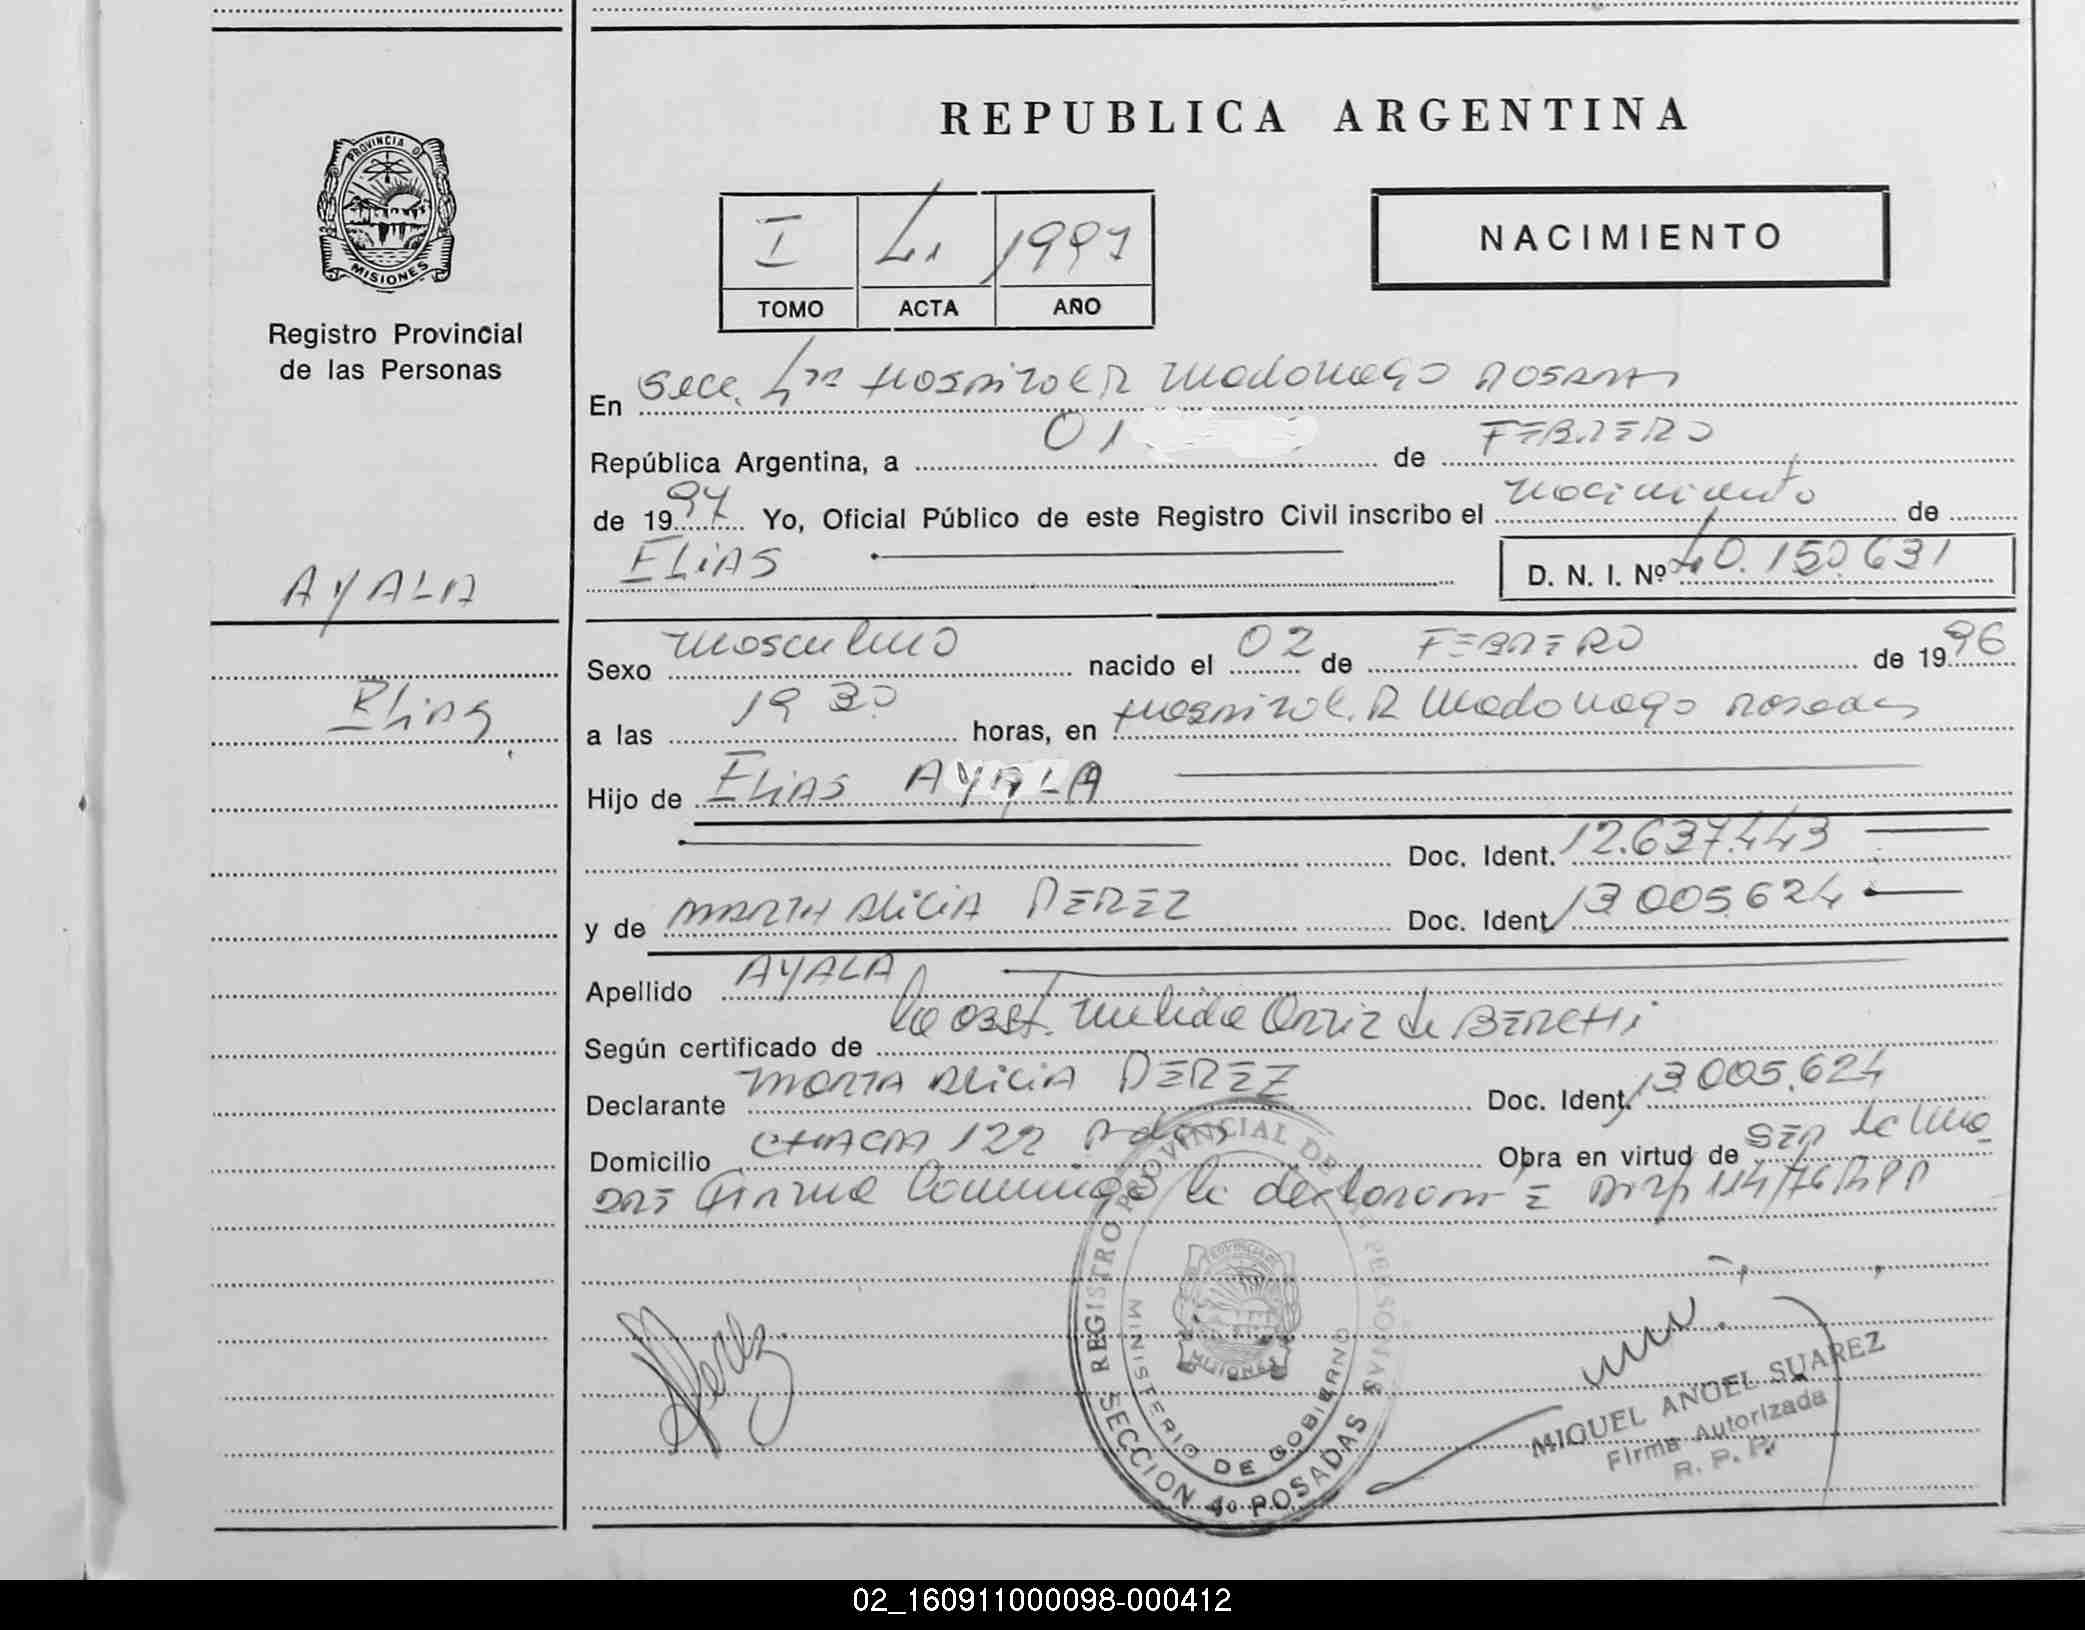 REPUBLICA ARGENTINA
PROVINCIA D
MISIONES
Registro Provincial
de las Personas
I 4 1997
TOMO ACTA AÑO
NACIMIENTO
En Secc. 4ta Hospital R Madariaga Posadas
República Argentina, a 01 de FEBRERO
de 1997 Yo, Oficial Público de este Registro Civil inscribo el nacimiento de
ELIAS
D. N. I. Nº 40.150.631
AYALA
Elias
Sexo masculino nacido el 02 de FEBRERO de 1996
a las 19 30 horas, en Hospital. R Madariaga Posadas
Hijo de ELIAS AYALA
Doc. Ident. 12.637.443
y de MARTA ALICIA PEREZ Doc. Ident. 13 005.624
Apellido AYALA
Según certificado de la obst. Ortiz de
Declarante MARTA ALICIA PEREZ Doc. Ident. 13 005.624
Domicilio CHACRA 122 Pdas Obra en virtud de ser la ma
dre Firma conmigo la declarante 114/76
Perez
REGISTRO PROVINCIAL DE LAS PERSONAS
MINISTERIO DE GOBIERNO
MISIONES
SECCION 4º POSADAS
MIGUEL ANGEL SUAREZ
Firma Autorizada
R. P. P.
02_160911000098-000412